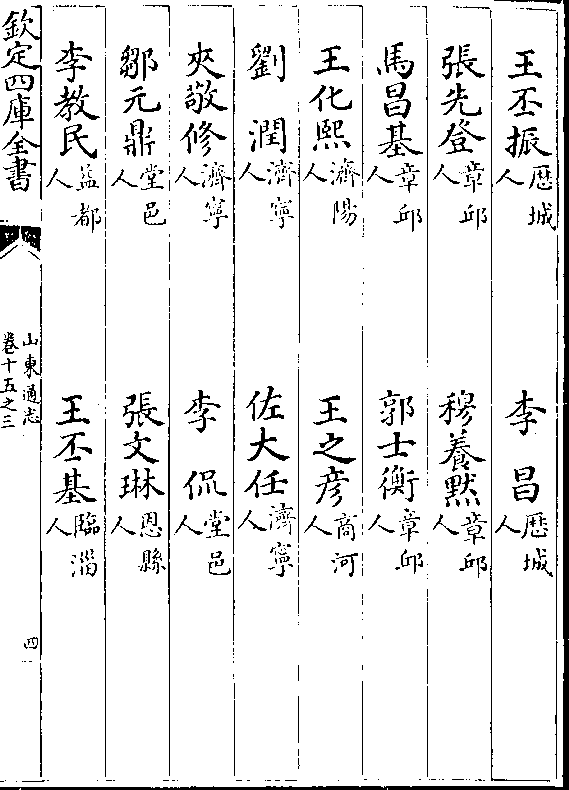 王丕振歷城人　李昌歷城人
張先登章邱人　穆養默章邱人
馬昌基章邱人　郭士衡章邱人
王化熙濟陽人　王之彥商河人
劉潤濟寧人　佐大任濟寧人
夾敬修濟寧人　李侃堂邑人
鄒元鼎堂邑人　張文琳恩縣人
李教民益都人　王丕基臨淄人
欽定四庫全書
山東通志
卷十五之三
四